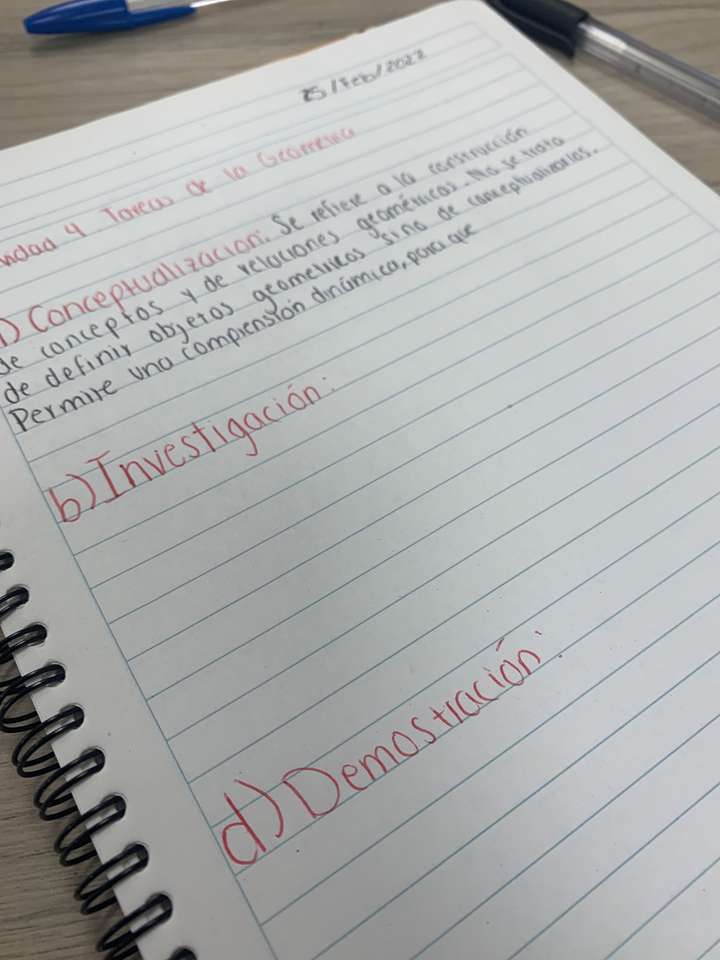 25/Feb/2022
nidad 4 Tareas de la Geometria
1) Conceptualización: Se refiere a la construcción
de conceptos y de relaciones geométricas. No se trata
de definir objetos geometricos sino de conceptualizarlos.
Permite una comprensión dinámica, para que
b) Investigación:
d) Demostración: